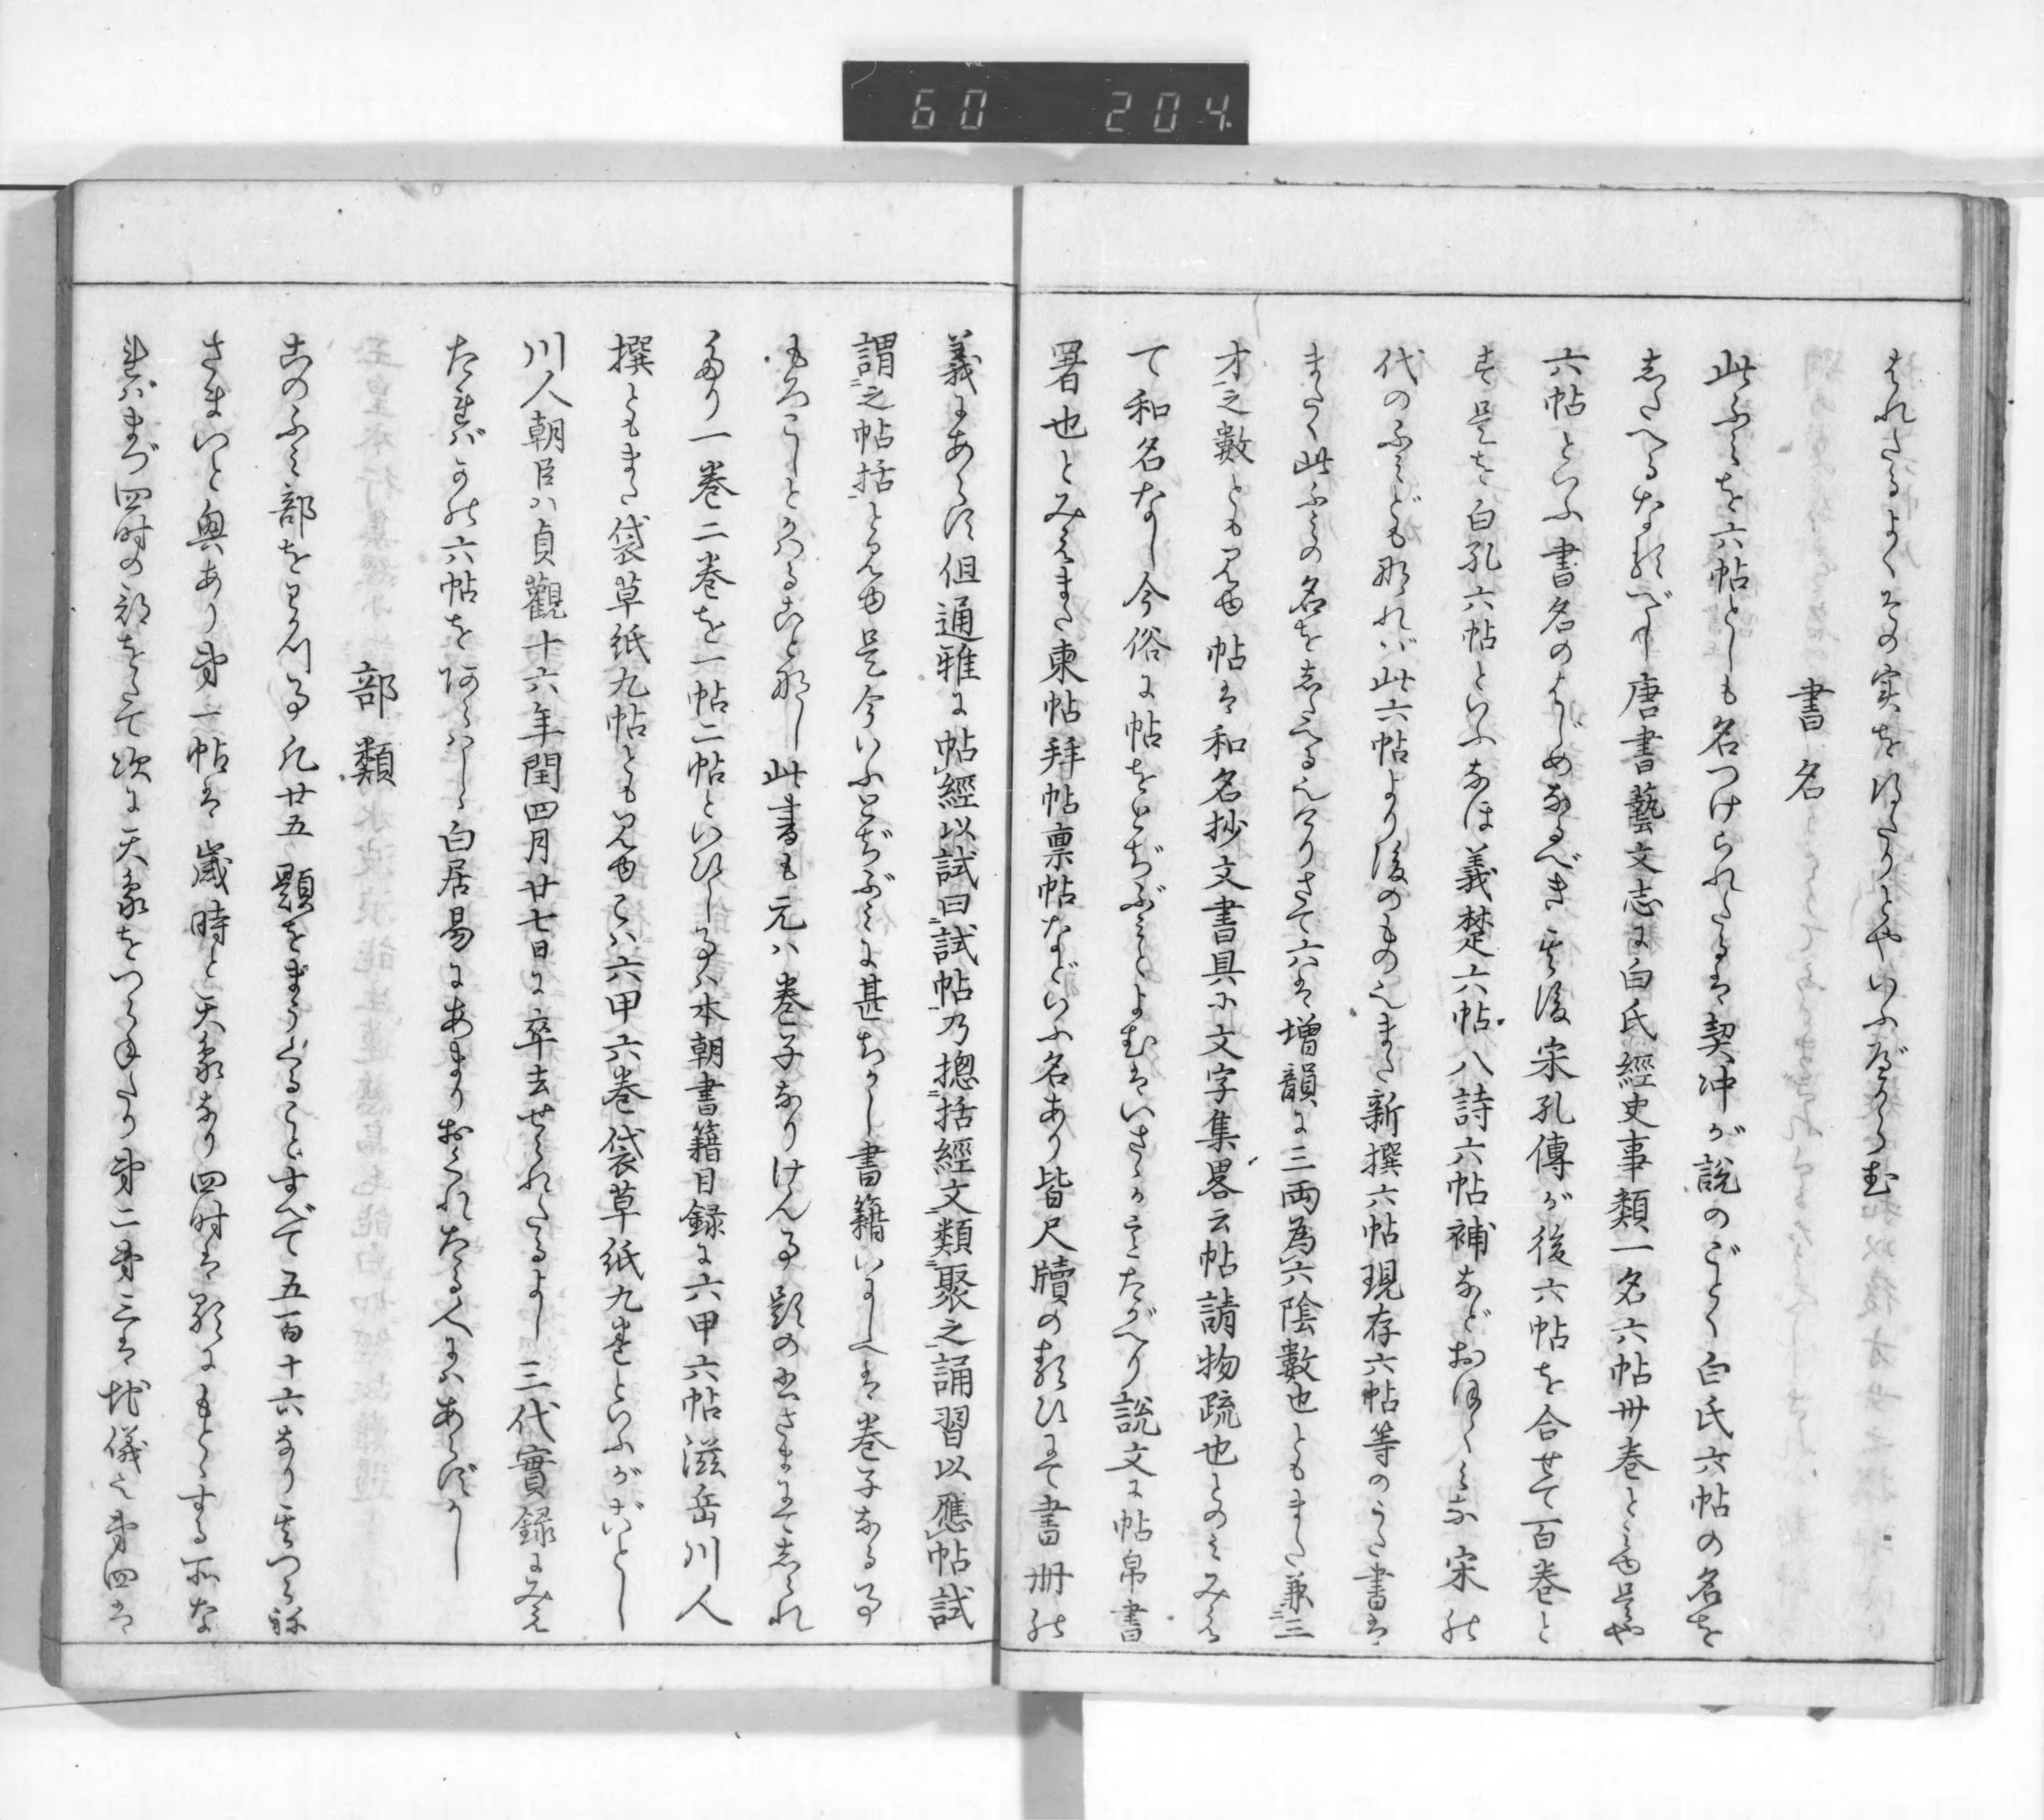 60 204
はれたるよくその実を得たりとやいふべからむ
書名
此ふみを六帖としも名つけられたるは契沖が説のごとく白氏六帖の名を
したへるなるべし唐書藝文志に白氏經史事類一名六帖卅巻とみゆ是や
六帖といふ書名のはじめなるべき其後宋孔傳が後六帖を合せて百巻と
す是を白孔六帖といふなほ義楚六帖八詩六帖補などおほくみな宋の
代のふみども那れば此六帖より後のもの也また新撰六帖現存六帖等のうた書は
またく此ふみの名をしたへる也けりさて六は増韻に三両為六陰數也ともまた兼三
才之數とも見ゆ帖は和名抄文書具に文字集畧云帖請物疏也とのみみえ
て和名なし今俗に帖をとぢぶみとよむはいさゝかことたがへり説文に帖帛書
署也とみえまた柬帖拜帖禀帖などいふ名あり皆尺牘の類ひにて書冊の
義にあらず但通雅に帖經以試曰試帖乃摠括經文類聚之誦習以應帖試
謂之帖括とみゆ是今いふとぢぶみに甚ちかし書籍いにしへは巻子なる事
もろこしとかはることなし此書も元ハ巻子なりけん事題の出さまにてしられ
たり一巻二巻を一帖二帖といひし事ハ本朝書籍目録に六甲六帖滋岳川人
撰ともまた袋草紙九帖とも見ゆこハ六甲六巻袋草紙九巻といふがごとし
川人朝臣ハ貞觀十六年閏四月廿七日に卒去せられたるよし三代實録にみえ
たればかの六帖を阿らハしゝ白居易にあまりおくれたる人にハあらずかし
部類
このふみ部をわかつ事凡廿五題をまうくることすべて五百十六なり其つらね
さまいと興あり第一帖は歳時と天象なり四時は歌にもとゝする所な
ればまづ四時の部をたて次に天象をつらねたり第二第三は地儀也第四は